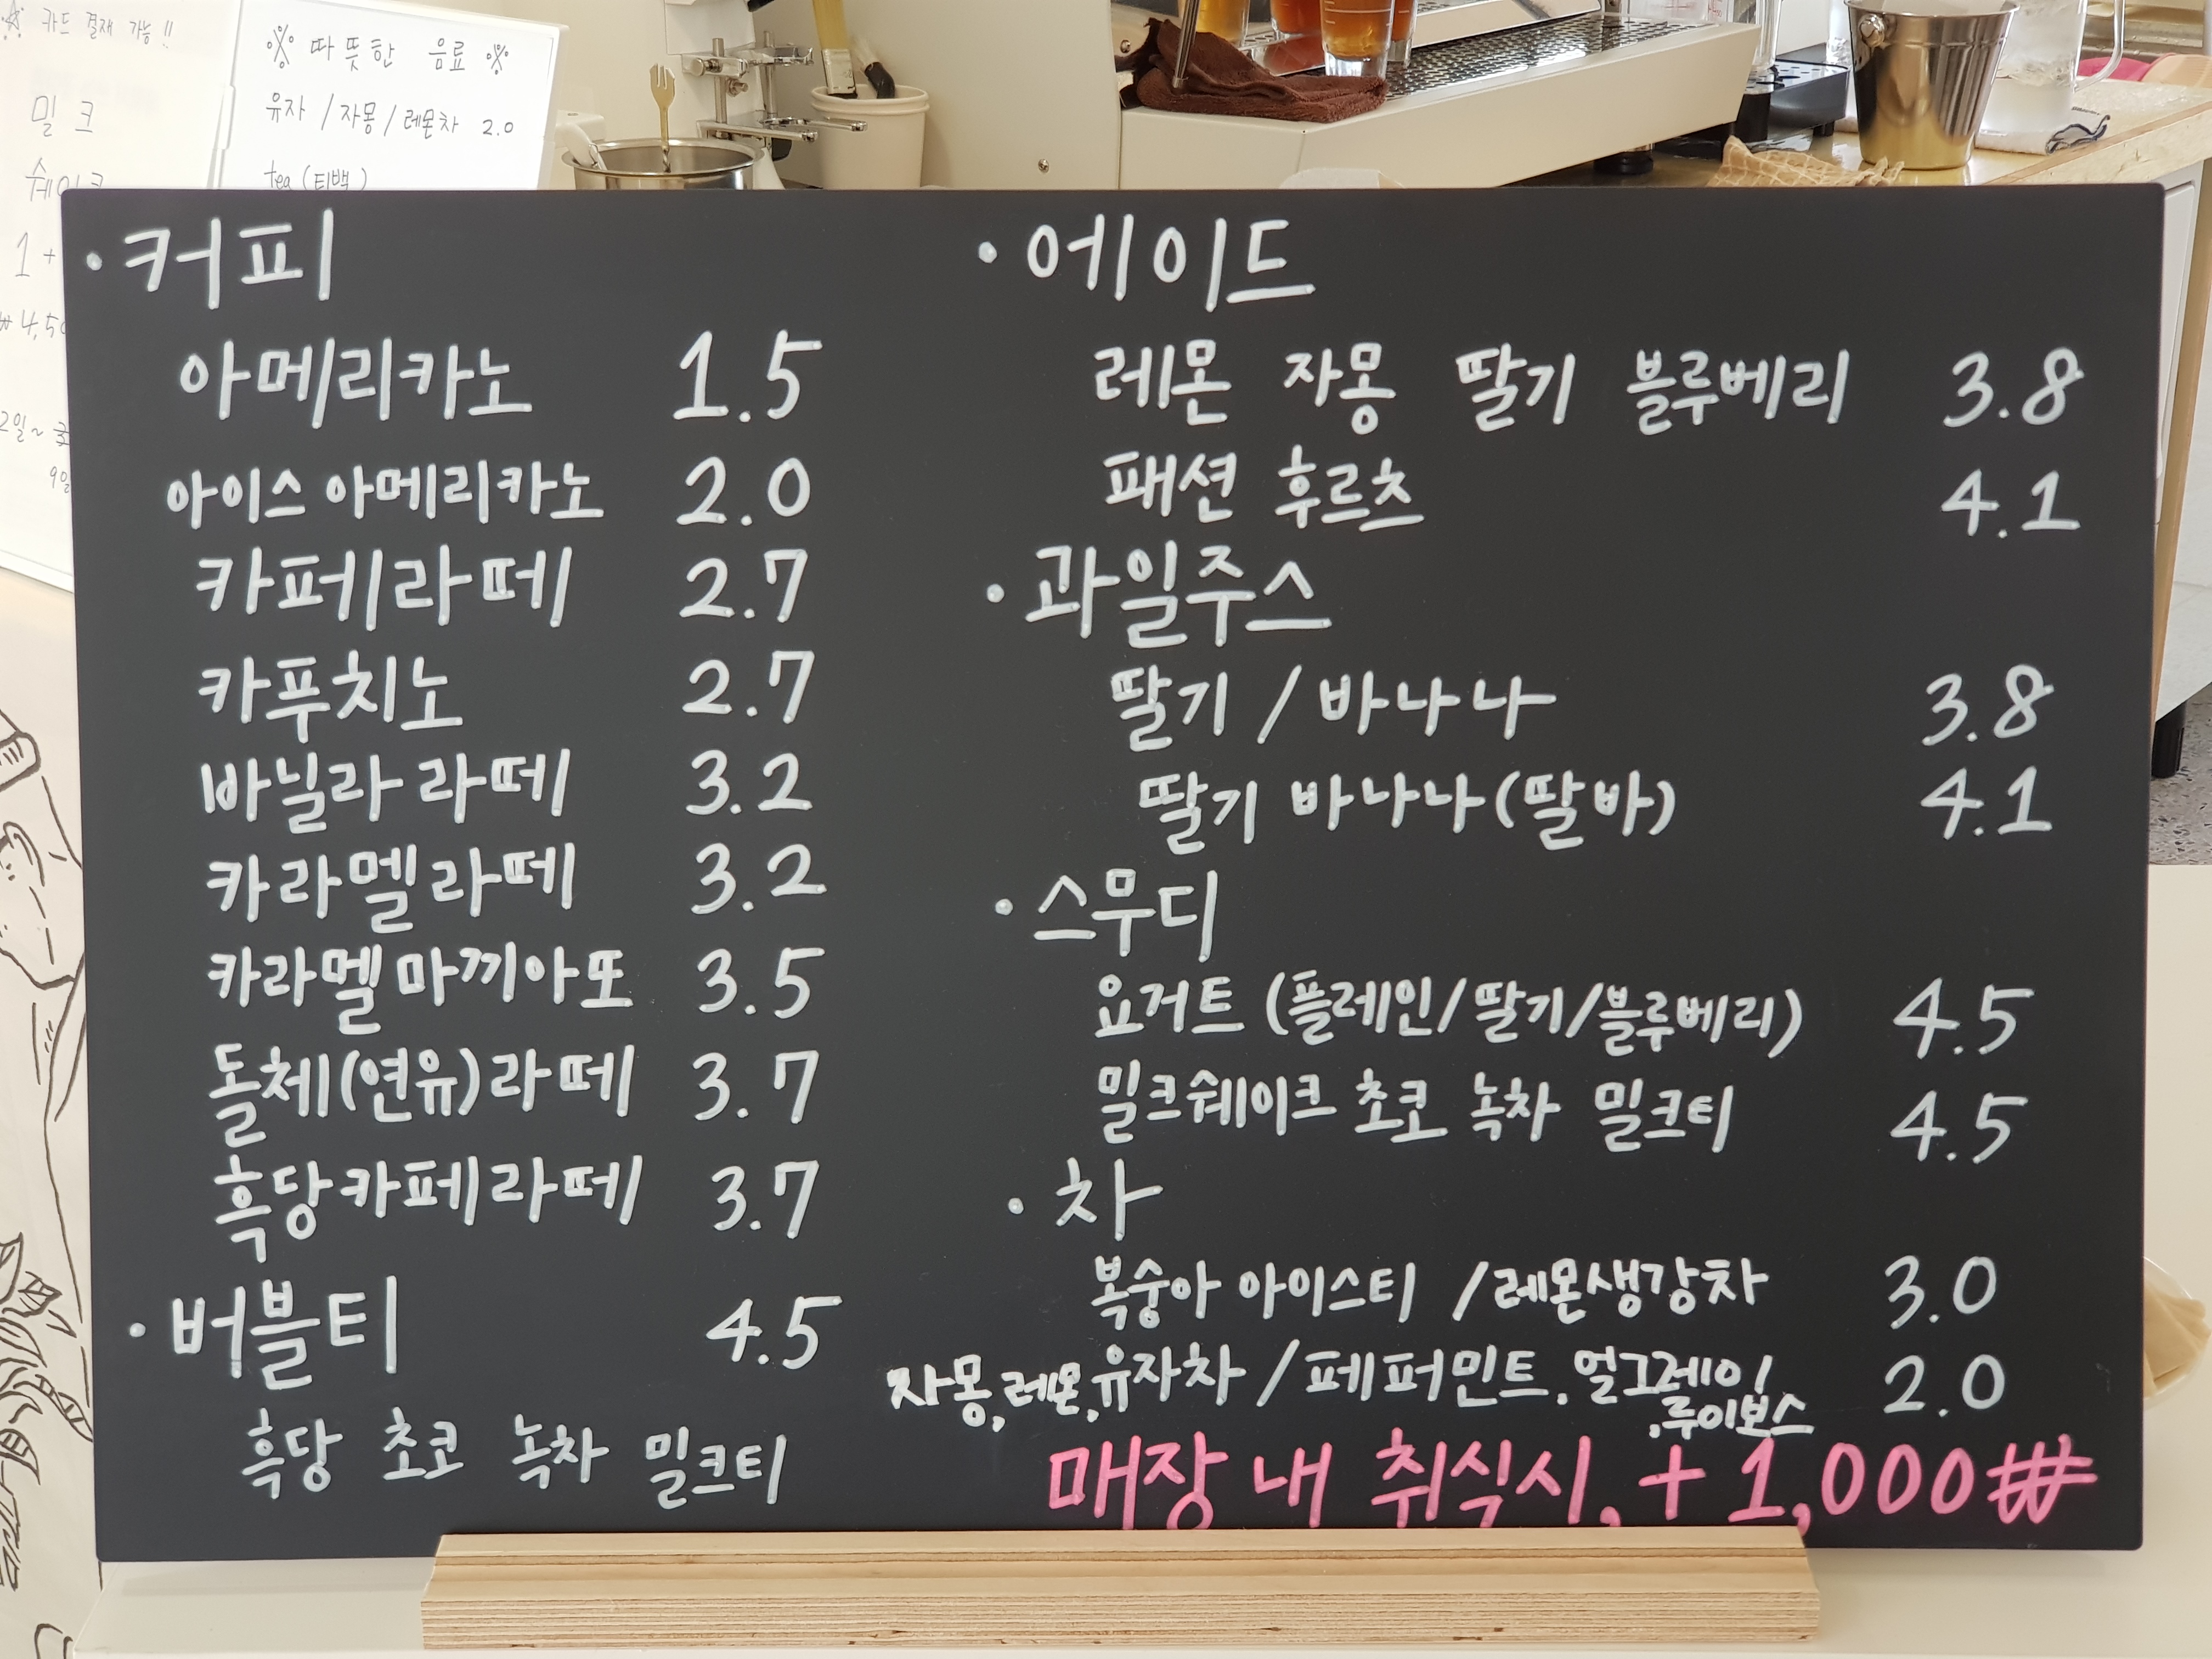 카드 결재 가능!!
밀크
쉐이크
1+
₩4,50
2일~
9일
※ 따뜻한 음료 ※
유자/자몽/레몬차 2.0
tea (티백)
·커피
아메리카노 1.5
아이스 아메리카노 2.0
카페라떼 2.7
카푸치노 2.7
바닐라 라떼 3.2
카라멜 라떼 3.2
카라멜 마끼아또 3.5
돌체(연유)라떼 3.7
흑당카페라떼 3.7
·버블티 4.5
흑당 초코 녹차 밀크티
·에이드
레몬 자몽 딸기 블루베리 3.8
패션 후르츠 4.1
·과일주스
딸기 / 바나나 3.8
딸기 바나나(딸바) 4.1
·스무디
요거트 (플레인/딸기/블루베리) 4.5
밀크쉐이크 초코 녹차 밀크티 4.5
·차
복숭아 아이스티 /레몬생강차 3.0
자몽,레몬,유자차 / 페퍼민트.얼그레이 2.0
.루이보스
매장 내 취식시, + 1,000₩